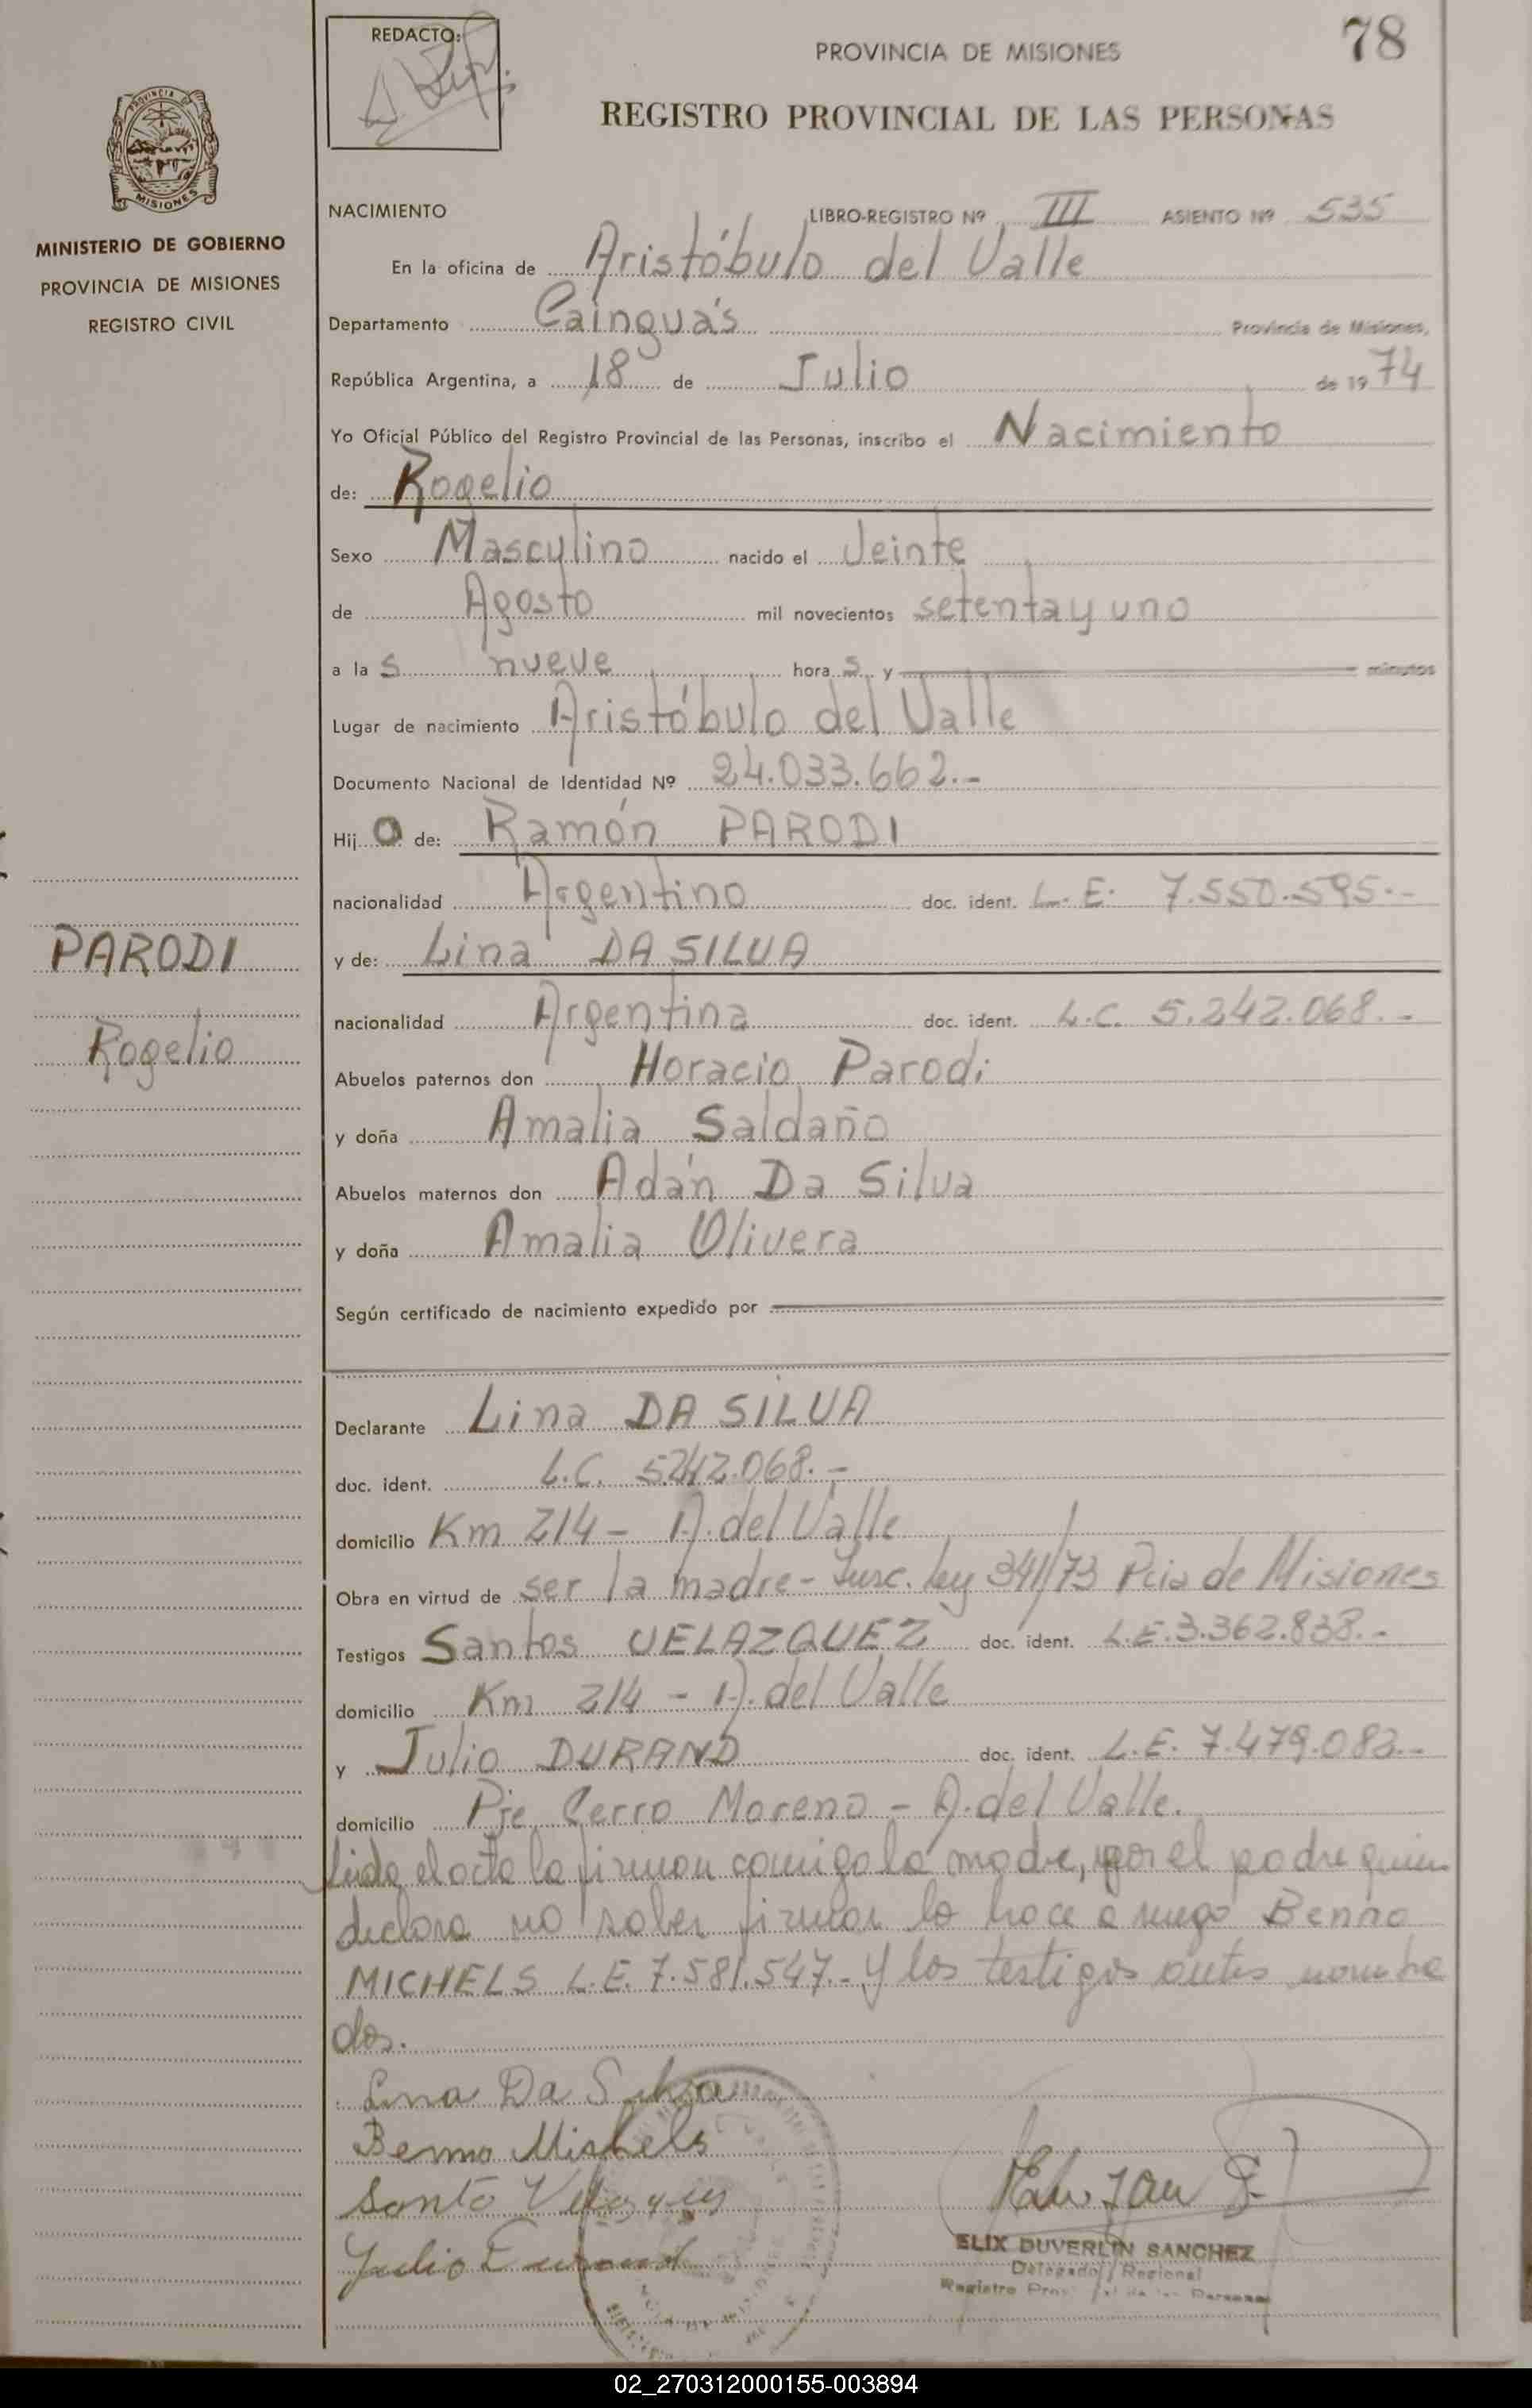 REDACTO:
PROVINCIA DE MISIONES
78
REGISTRO PROVINCIAL DE LAS PERSONAS
MISIONES
MINISTERIO DE GOBIERNO
PROVINCIA DE MISIONES
REGISTRO CIVIL
NACIMIENTO LIBRO-REGISTRO Nº III ASIENTO Nº 535
En la oficina de Aristóbulo del Valle
Departamento Cainguás Provincia de Misiones,
República Argentina, a 18 de Julio de 1974
Yo Oficial Público del Registro Provincial de las Personas, inscribo el Nacimiento
de: Rogelio
Sexo Masculino nacido el Veinte
de Agosto mil novecientos setenta y uno
a las nueve horas y minutos
Lugar de nacimiento Aristóbulo del Valle
Documento Nacional de Identidad Nº 24.033.662.-
Hijo de: Ramón PARODI
nacionalidad Argentino doc. ident. L.E. 7.550.595.-
PARODI
y de: Lina DA SILVA
Rogelio
nacionalidad Argentina doc. ident. L.C. 5.242.068.-
Abuelos paternos don Horacio Parodi
y doña Amalia Saldaño
Abuelos maternos don Adán Da Silva
y doña Amalia Olivera
Según certificado de nacimiento expedido por
Declarante Lina DA SILVA
doc. ident. L.C. 5.242.068.-
domicilio Km 214 - A. del Valle
Obra en virtud de ser la madre - Insc. ley 341/73 Pcia de Misiones
Testigos Santos VELAZQUEZ doc. ident. L.E. 3.362.838.-
domicilio Km 214 - A. del Valle
y Julio DURAND doc. ident. L.E. 7.479.083.-
domicilio Pje Cerro Moreno - A. del Valle.
Leida el acta la firman conmigo la madre, por el padre quien
declara no saber firmar lo hace a ruego Benno
MICHELS L.E. 7.581.547.- y los testigos antes nombra
dos.
Lina Da Silva
Benno Michels
Santo Velazquez
Julio Durand
ELIX DUVERLIN SANCHEZ
Delegado Regional
Registro Prov. de las Personas
02_270312000155-003894